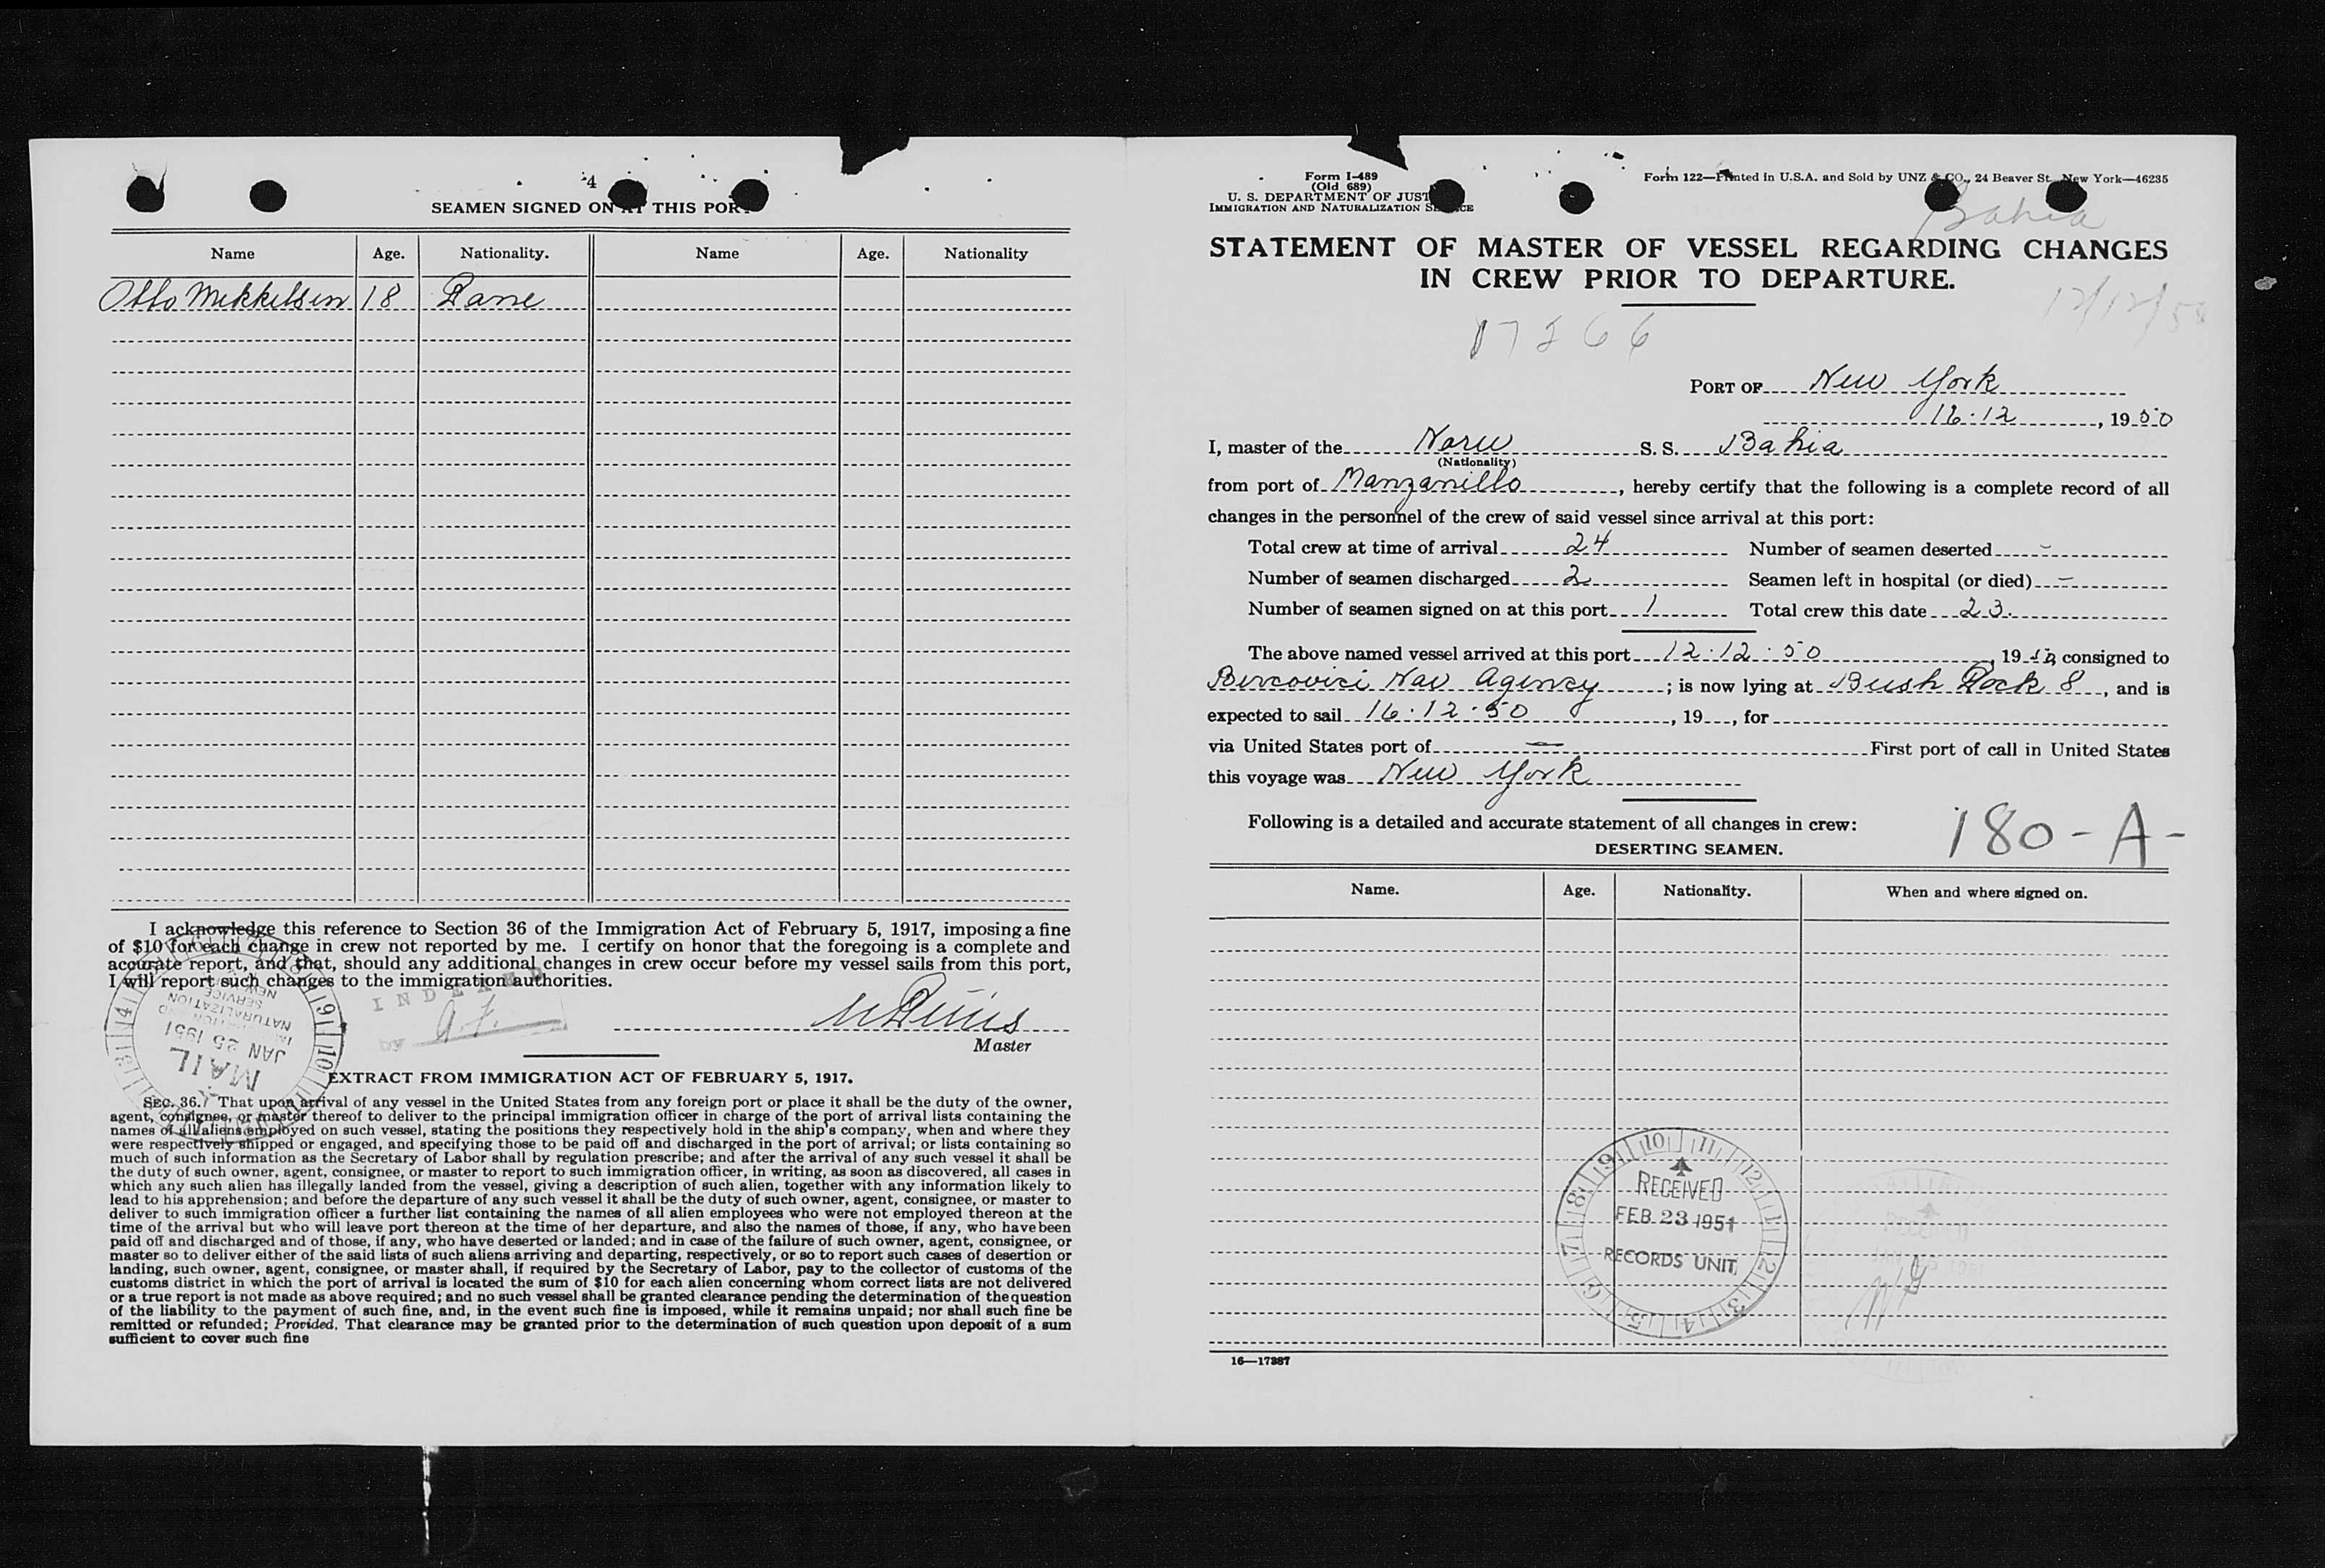 4
SEAMEN SIGNED ON AT THIS PORT
Name Age. Nationality. Name Age. Nationality
Otto Mikkelsen 18 Dane
I acknowledge this reference to Section 36 of the Immigration Act of February 5, 1917, imposing a fine
of $10 for each change in crew not reported by me. I certify on honor that the foregoing is a complete and
accurate report, and that, should any additional changes in crew occur before my vessel sails from this port,
I will report such changes to the immigration authorities.
INDEXED
by
Master
MAIL
JAN 25 1951
NATURALIZATION
SERVICE
EXTRACT FROM IMMIGRATION ACT OF FEBRUARY 5, 1917.
SEC. 36. That upon arrival of any vessel in the United States from any foreign port or place it shall be the duty of the owner,
agent, consignee, or master thereof to deliver to the principal immigration officer in charge of the port of arrival lists containing the
names of all aliens employed on such vessel, stating the positions they respectively hold in the ship's company, when and where they
were respectively shipped or engaged, and specifying those to be paid off and discharged in the port of arrival; or lists containing so
much of such information as the Secretary of Labor shall by regulation prescribe; and after the arrival of any such vessel it shall be
the duty of such owner, agent, consignee, or master to report to such immigration officer, in writing, as soon as discovered, all cases in
which any such alien has illegally landed from the vessel, giving a description of such alien, together with any information likely to
lead to his apprehension; and before the departure of any such vessel it shall be the duty of such owner, agent, consignee, or master to
deliver to such immigration officer a further list containing the names of all alien employees who were not employed thereon at the
time of the arrival but who will leave port thereon at the time of her departure, and also the names of those, if any, who have been
paid off and discharged and of those, if any, who have deserted or landed; and in case of the failure of such owner, agent, consignee, or
master so to deliver either of the said lists of such aliens arriving and departing, respectively, or so to report such cases of desertion or
landing, such owner, agent, consignee, or master shall, if required by the Secretary of Labor, pay to the collector of customs of the
customs district in which the port of arrival is located the sum of $10 for each alien concerning whom correct lists are not delivered
or a true report is not made as above required; and no such vessel shall be granted clearance pending the determination of the question
of the liability to the payment of such fine, and, in the event such fine is imposed, while it remains unpaid; nor shall such fine be
remitted or refunded; Provided, That clearance may be granted prior to the determination of such question upon deposit of a sum
sufficient to cover such fine
Form I-489
(Old 689)
U. S. DEPARTMENT OF JUSTICE
IMMIGRATION AND NATURALIZATION SERVICE
Form 122—Printed in U.S.A. and Sold by UNZ & CO., 24 Beaver St., New York—46235
Bahia
STATEMENT OF MASTER OF VESSEL REGARDING CHANGES
IN CREW PRIOR TO DEPARTURE.
12/12/50
17266
PORT OF New York
16.12, 1950
I, master of the Norw S. S. Bahia
(Nationality)
from port of Manzanillo, hereby certify that the following is a complete record of all
changes in the personnel of the crew of said vessel since arrival at this port:
Total crew at time of arrival 24 Number of seamen deserted -
Number of seamen discharged 2 Seamen left in hospital (or died) -
Number of seamen signed on at this port 1 Total crew this date 23.
The above named vessel arrived at this port 12.12.50, 1950, consigned to
Bercovici Nav Agency; is now lying at Bush Dock 8, and is
expected to sail 16.12.50, 19, for
via United States port of - First port of call in United States
this voyage was New York
Following is a detailed and accurate statement of all changes in crew:
180-A-
DESERTING SEAMEN.
Name. Age. Nationality. When and where signed on.
RECEIVED
FEB 23 1951
RECORDS UNIT
16—17387